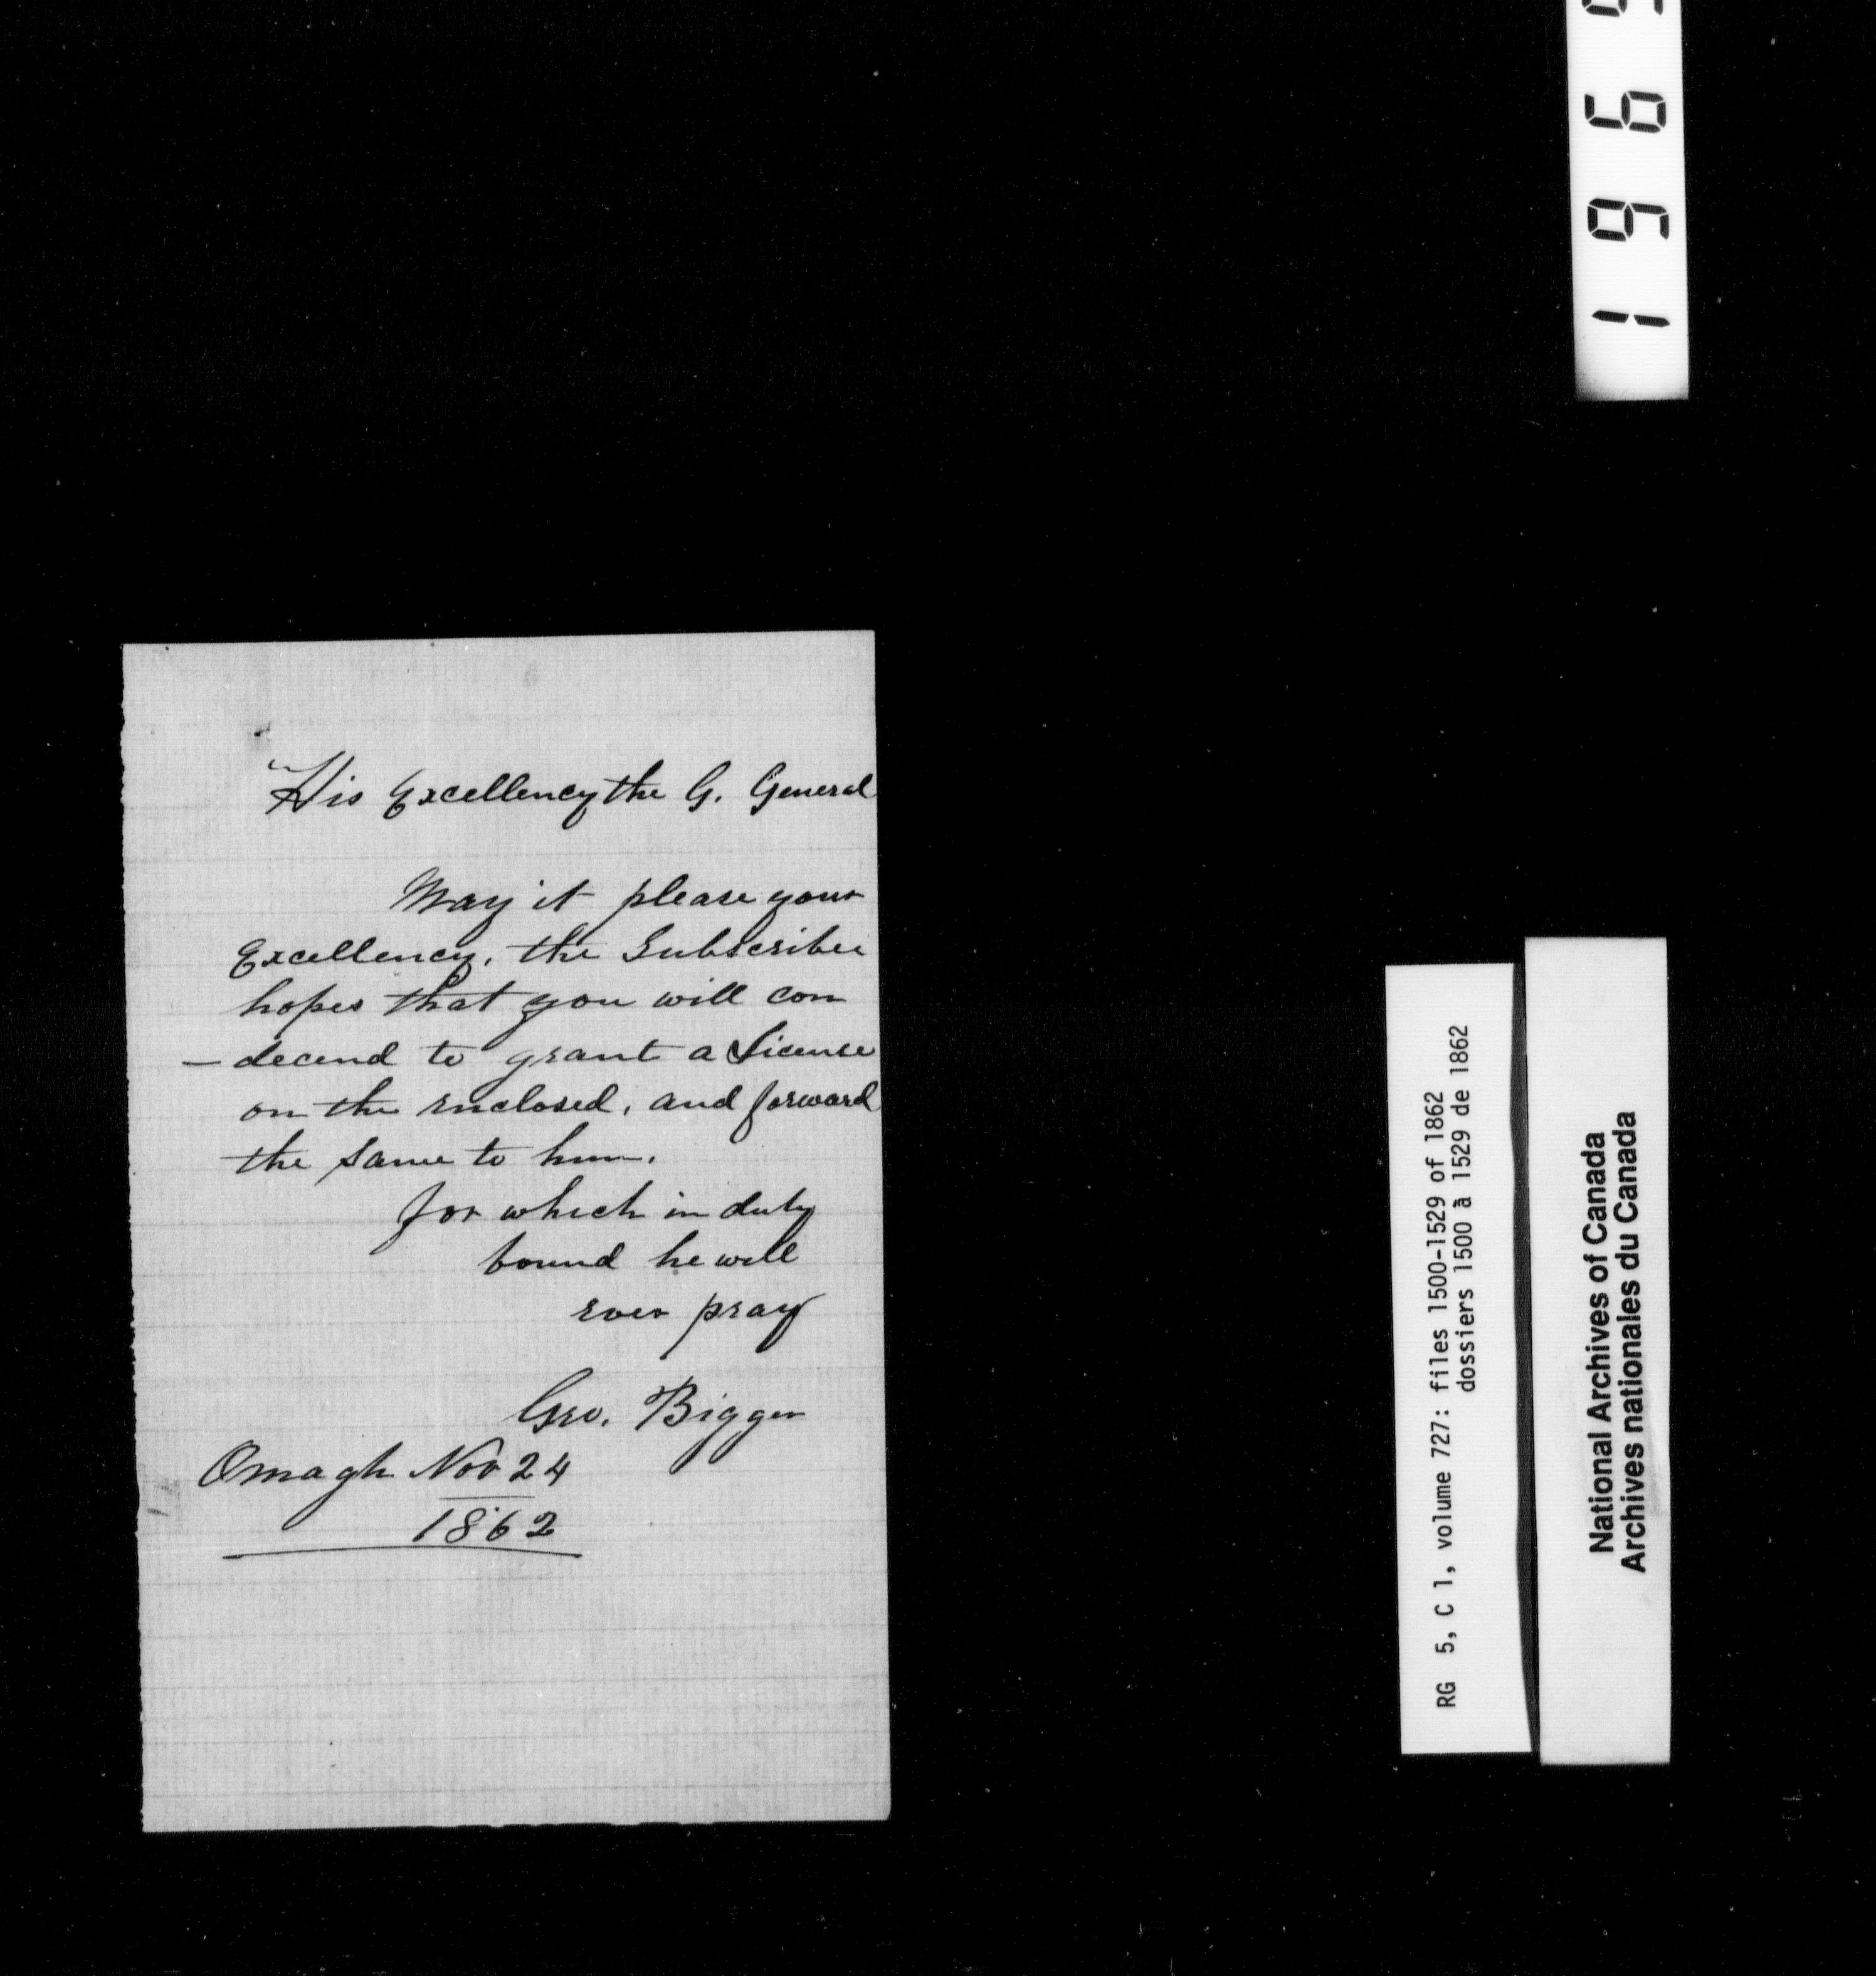 His Excellency the G. General
May it please your
Excellency, the Subscriber
hopes that you will con
– decend to grant a License
on the enclosed, and forward
the same to him.
for which in duty
bound he will
ever pray
Geo. Bigger
Omagh Nov 24
1862
RG 5, C 1, volume 727: files 1500-1529 of 1862
dossiers 1500 à 1529 de 1862
National Archives of Canada
Archives nationales du Canada